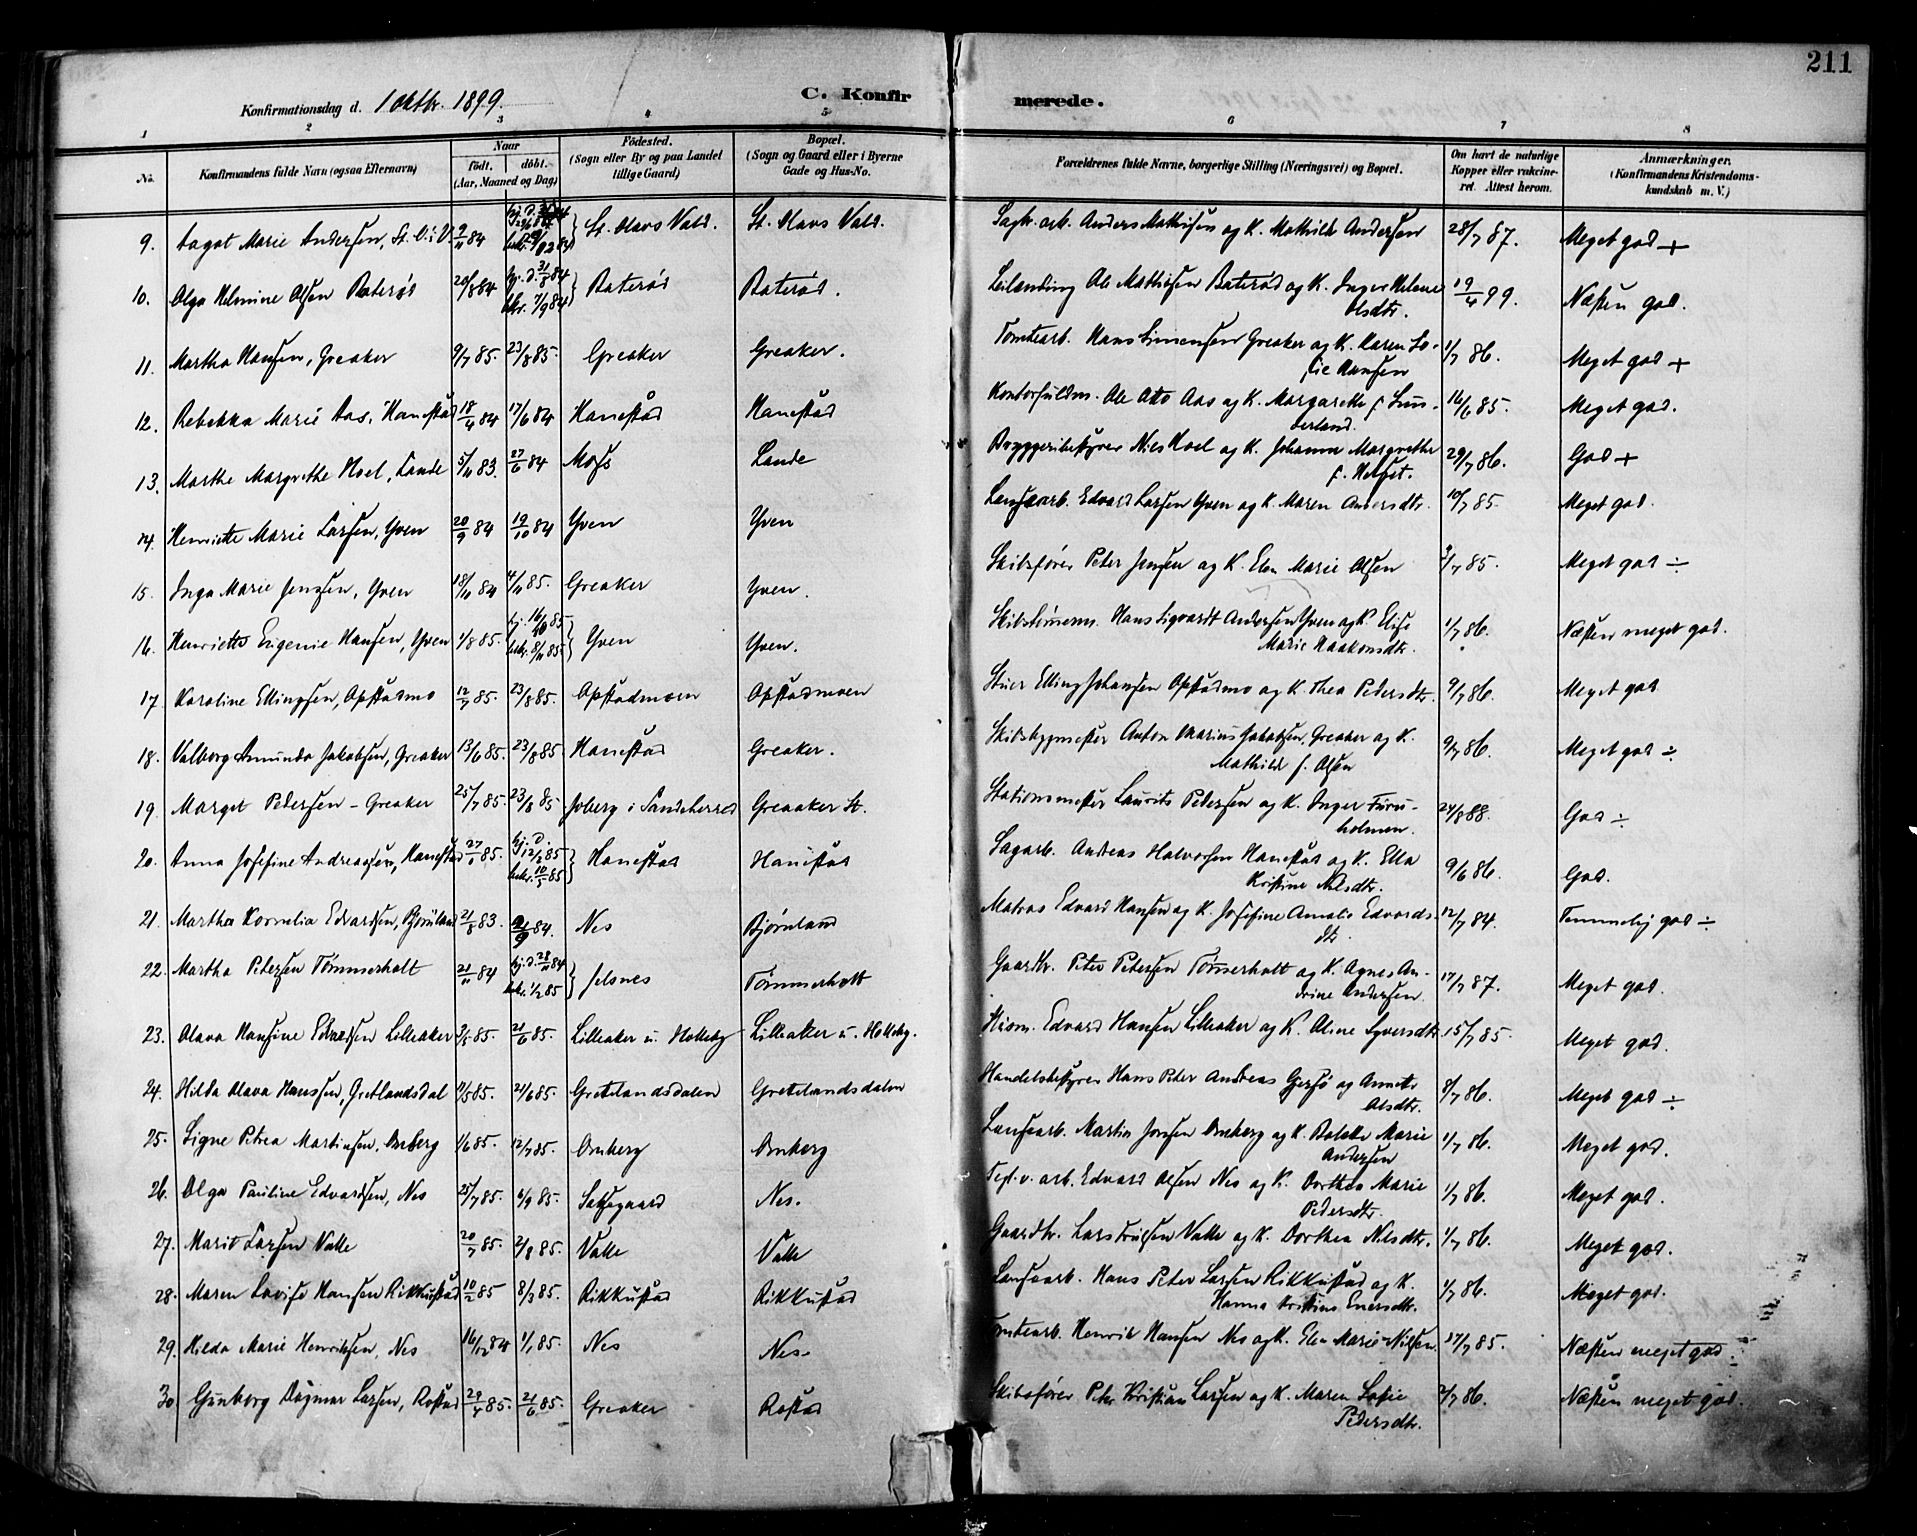 211
Konfirmationsdag d. 1 oktbr. 1899.
C. Konfirmerede.
1 2 3 4 5 6 7 8
No. Konfirmandens fulde Navn (ogsaa Efternavn) Naar født. døbt. (Aar, Maaned og Dag) Fødested. (Sogn eller By og paa Landet lillige Gaard) Bopæl. (Sogn og Gaard eller i Byerne Gade og Hus-No. Forældrenes fulde Navne, borgerlige Stilling (Næringsvei) og Bopæl. Om havt de naturlige Kopper eller vakcineret. Attest herom. Anmærkninger. (Konfirmandens Kristendomskundskab m. V.)
9. Aagot Marie Andersen, St. O. V. 9/11 84 St. Olavs Vald. St. Olavs Vald. Anders Mathisen og K. Mathilde Andersen 28/7 87. Meget god +
10. Olga Helmine Olsen Baterød 20/8 84 hj. d. 31/8 84 bkr. 7/9 84 Baterød Baterød. Leilænding Ole Mathisen Baterød og K. Inger Helene
Olsdtr. 19/4 99. Næsten god.
11. Martha Hansen, Greaker 9/7 85. 23/8 85. Greaker Greaker. Tomtearb. Hans Simensen Greaker og K. Karen So-
fie Hansen 1/7 86. Meget god +
12. Rebekka Marie Aas, Hanestad 18/4 84 17/6 84 Hanestad Hanestad Kontorfuldm. Ole Otto Aas og K. Margarethe f. Sun-
derland. 16/6 85. Meget god.
13. Marthe Margrethe Hoel, Lande 5/11 83. 27/6 84 Moss Lande Bryggeribestyrer Niels Hoel og K. Johanne Margrethe
29/7 86. God +
14. Henriette Marie Larsen, Yven 20/9 84 19/10 84 Yven Yven Lensearb. Edvard Larsen Yven og K. Maren Andersdtr. 10/7 85. Meget god.
15. Inga Marie Jensen, Yven 18/11 84 4/11 85. Greaker Yven. Skibsfører Peter Jensen og K. Elen Marie Olsen 3/7 85. Meget god ÷
16. Henriette Eugenie Hansen, Yven 1/8 85. bekr. 8/11 85 Yven Yven. Skibstømrm. Hans Sigvardt Andersen Yven og K. Elise
Marie Haakonsdtr. 1/7 86. Næsten meget god.
17. Karoline Ellingsen, Opstadmo 12/7 85. 23/8 85. Opstadmoen Opstadmoen Stuer Elling Johansen Opstadmo og K. Thea Pedersdtr. 9/7 86. Meget god
18. Valborg Amunda Jakobsen, Greaker 13/6 85. 23/8 85 Hanestad Greaker. Skibsbygmester Anton Marius Jakobsen, Greaker og K.
Mathilde f. Olsen 9/7 86. Meget god ÷
19. Marget Pedersen - Greaker 25/7 85. 23/8 85 Joberg i Sandeherred Greaaker St. Stationsmester Laurits Pedersen og K. Inger Furu-
holmen. 24/8 88. God ÷
20. Anna Josefine Andreassen, Hanestad 27/1 85. hj. d. 12/2 85 bekr. 10/5 85 Hanestad Hanestad Sagarb. Andreas Halvorsen Hanestad og K. Ella
Kristine Nilsdtr. 9/6 86. God.
21. Martha Kornelia Edvardsen, Bjørnland 21/8 83. 21/9 84. Nes Bjørnland Matros Edvard Hansen og K. Josefine Amalie Edvards-
dtr. 12/7 84. Temmelig god ÷
22. Martha Petersen Tømmerholt 21/11 84 hj. d. 28/11 84 bekr. 1/2 85 Jelsnes Tømmerholt Gaardbr. Peter Petersen Tømmerholt og K. Agnes An-
drine Andersen. 17/7 87. Meget god.
23. Olava Hansine Edvardsen Lilleaker 3/5 85. 21/6 85. Lilleaker u. Holleby Lilleaker u. Holleby. Edvard Hansen Lilleaker og K. Oline Syversdtr. 15/7 85. Meget god.
24. Hilda Olava Hanssen, Gretlandsdal 11/5 85. 21/6 85. Gretelandsdalen Gretelandsdalen Handelsbestyrer Hans Peter Andreas Gjersø og Annete
Olsdtr. 8/7 86. Meget god ÷
25. Signe Petrea Martinsen, Omberg 1/6 85. 12/7 85. Omberg Omberg Lensearb. Martin Jonsen Omberg og K. Bolette Marie
Andersen 1/7 86. Meget god.
26. Olga Pauline Edvardsen, Nes 25/7 85. 6/9 85. Nes. Tegl.v. arb. Edvard Olsen Nes og K. Dorthea Marie
Pedersdtr. 1/7 86. Meget god.
27. Marit Larsen Valle 20/7 85. 2/8 85. Valle Valle Gaardbr. Lars Trulsen Valle og K. Dorthea Nilsdtr. 1/7 86. Meget god.
28. Maren Lovise Hansen Rikkustad 10/2 85 8/3 85. Rikkustad Rikkustad Lensearb. Hans Peter Larsen Rikkustad og K.
Hanna Kristine Enersdtr. 1/7 86. Meget god.
29. Hilda Marie Henriksen, Nes 16/12 84 1/1 85. Nes Nes. Tomtearb. Henrik Hansen Nes og K. Elen Marie Nilsen. 17/7 85. Næsten meget god.
30 Gunborg Dagmar Larsen, Rostad 29/4 85. 21/6 85. Greaker Rostad Skibsfører Peter Kristian Larsen og K. Maren Sofie
Pedersdtr. 2/7 86. Næsten meget god.